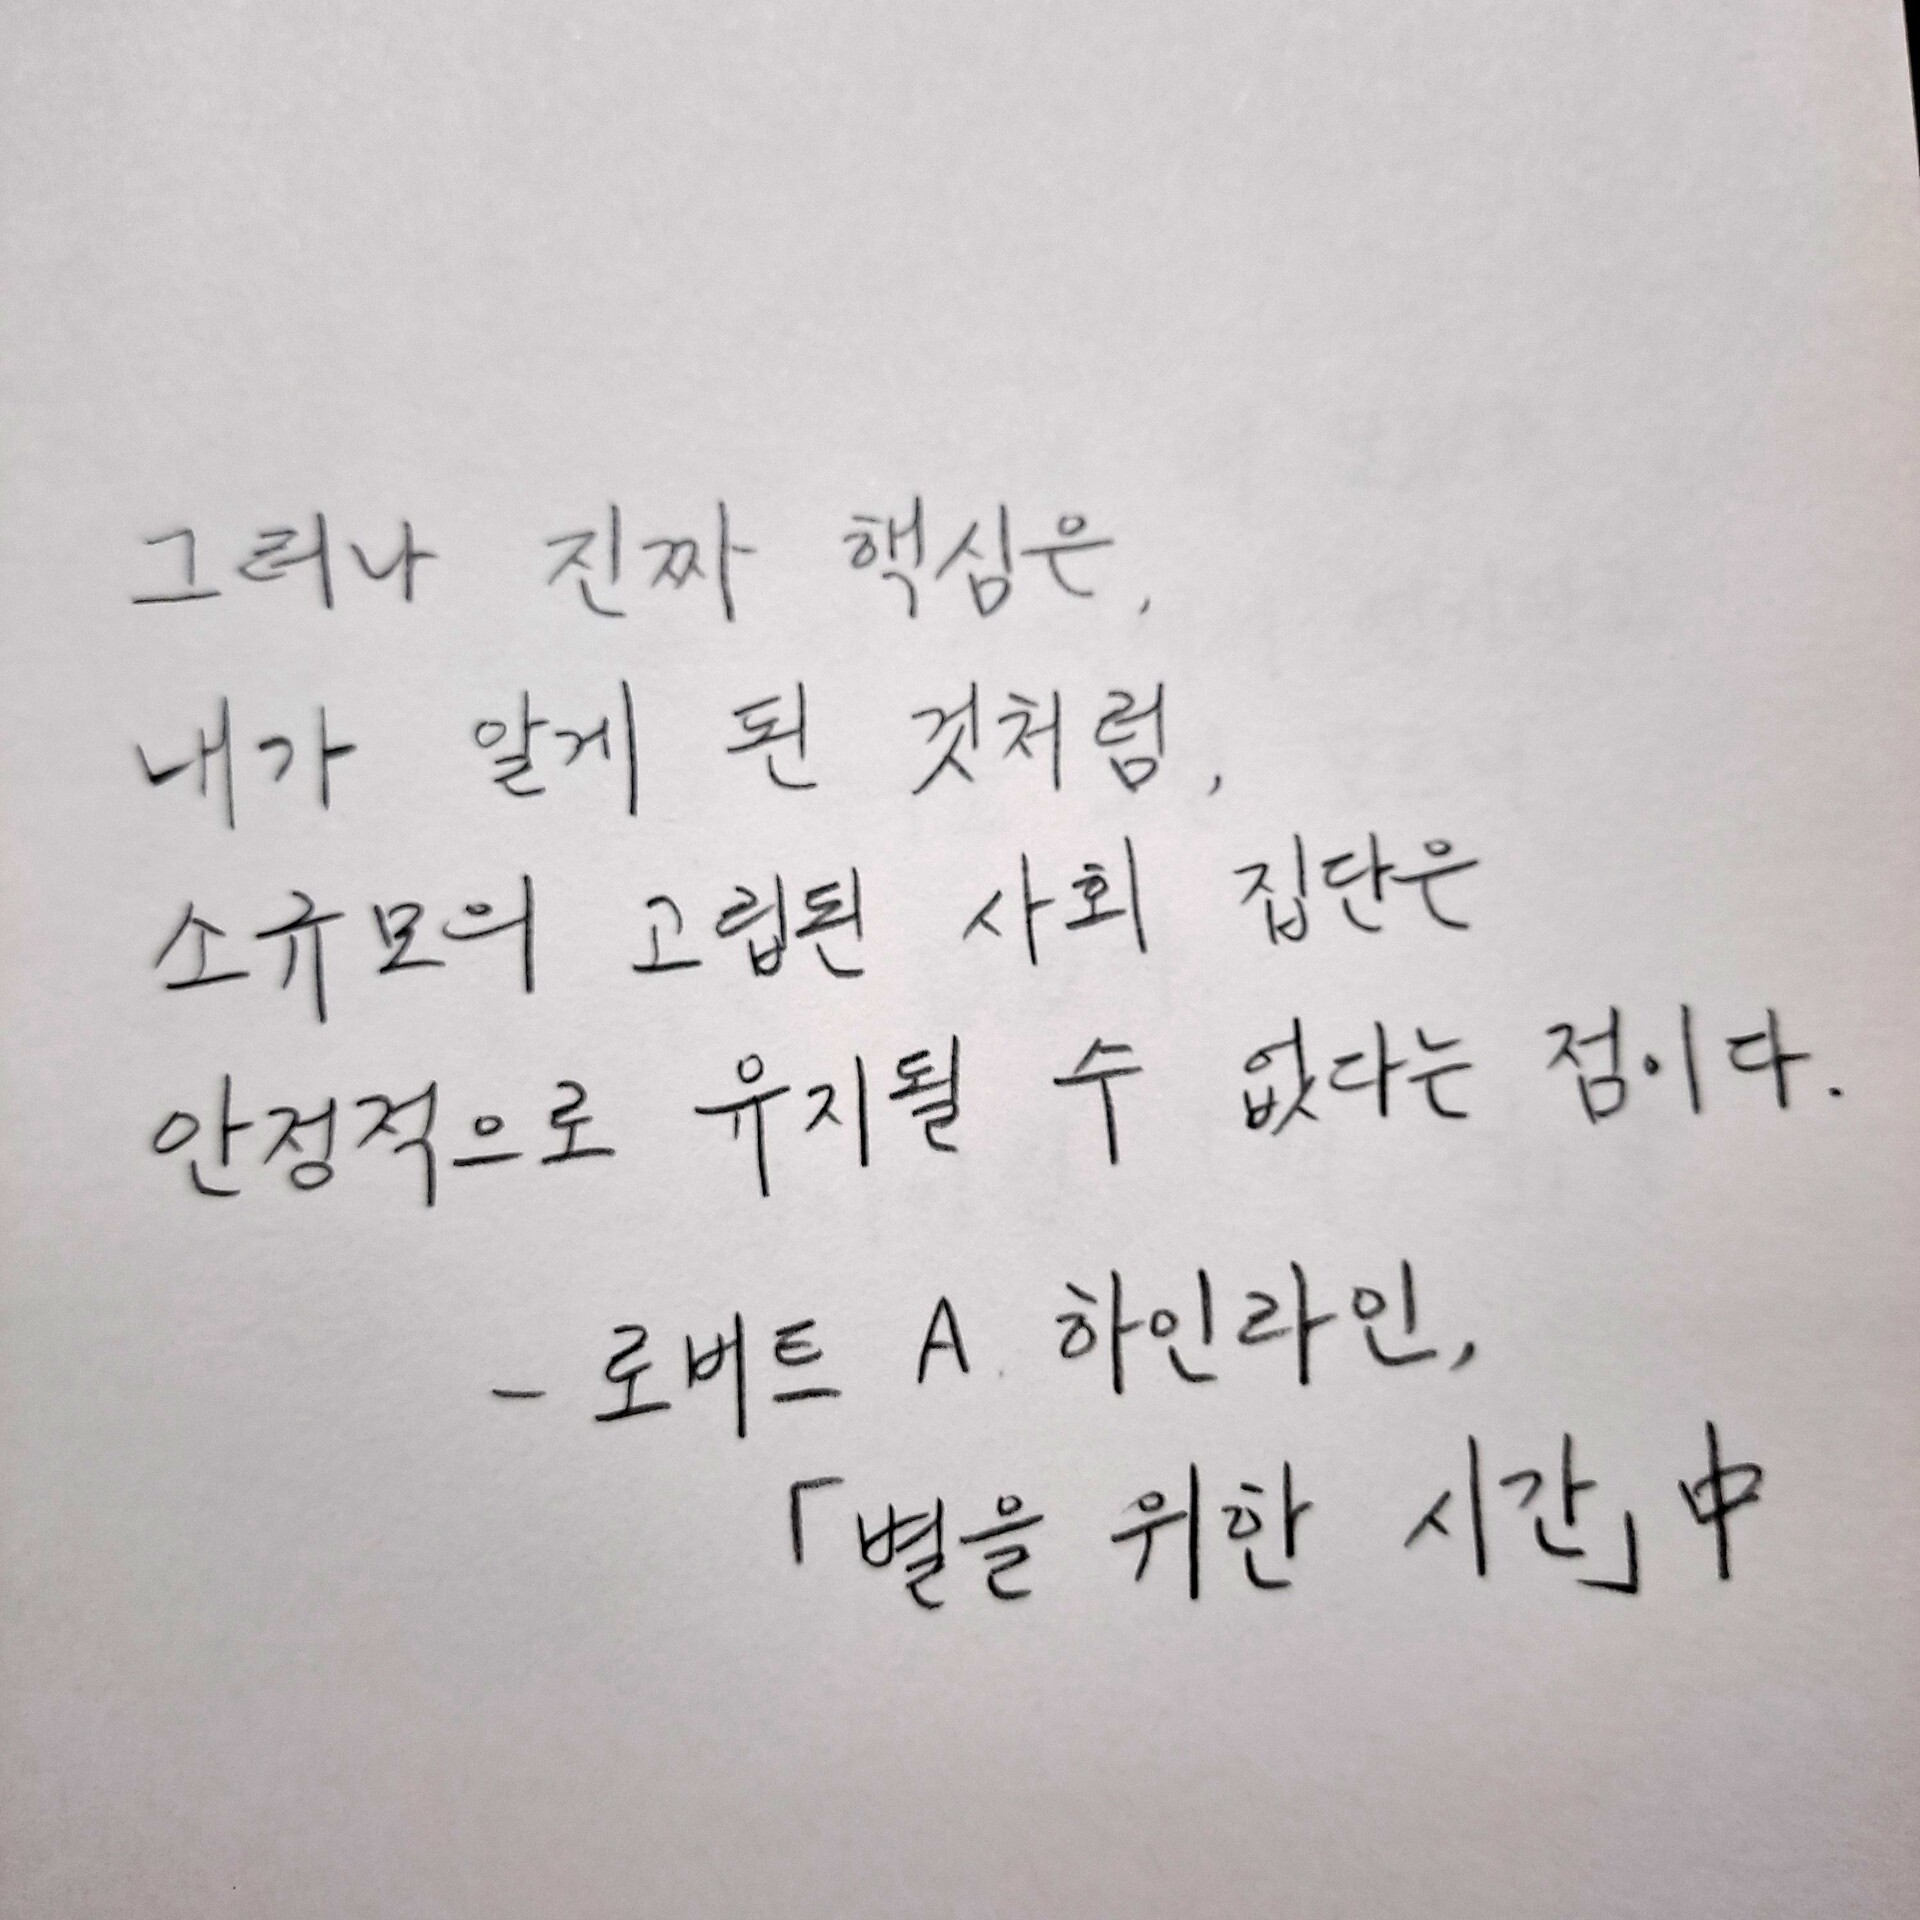 그러나 진짜 핵심은,
내가 알게 된 것처럼,
소규모의 고립된 사회 집단은
안정적으로 유지될 수 없다는 점이다.
- 로버트 A. 하인라인,
「별을 위한 시간」 中